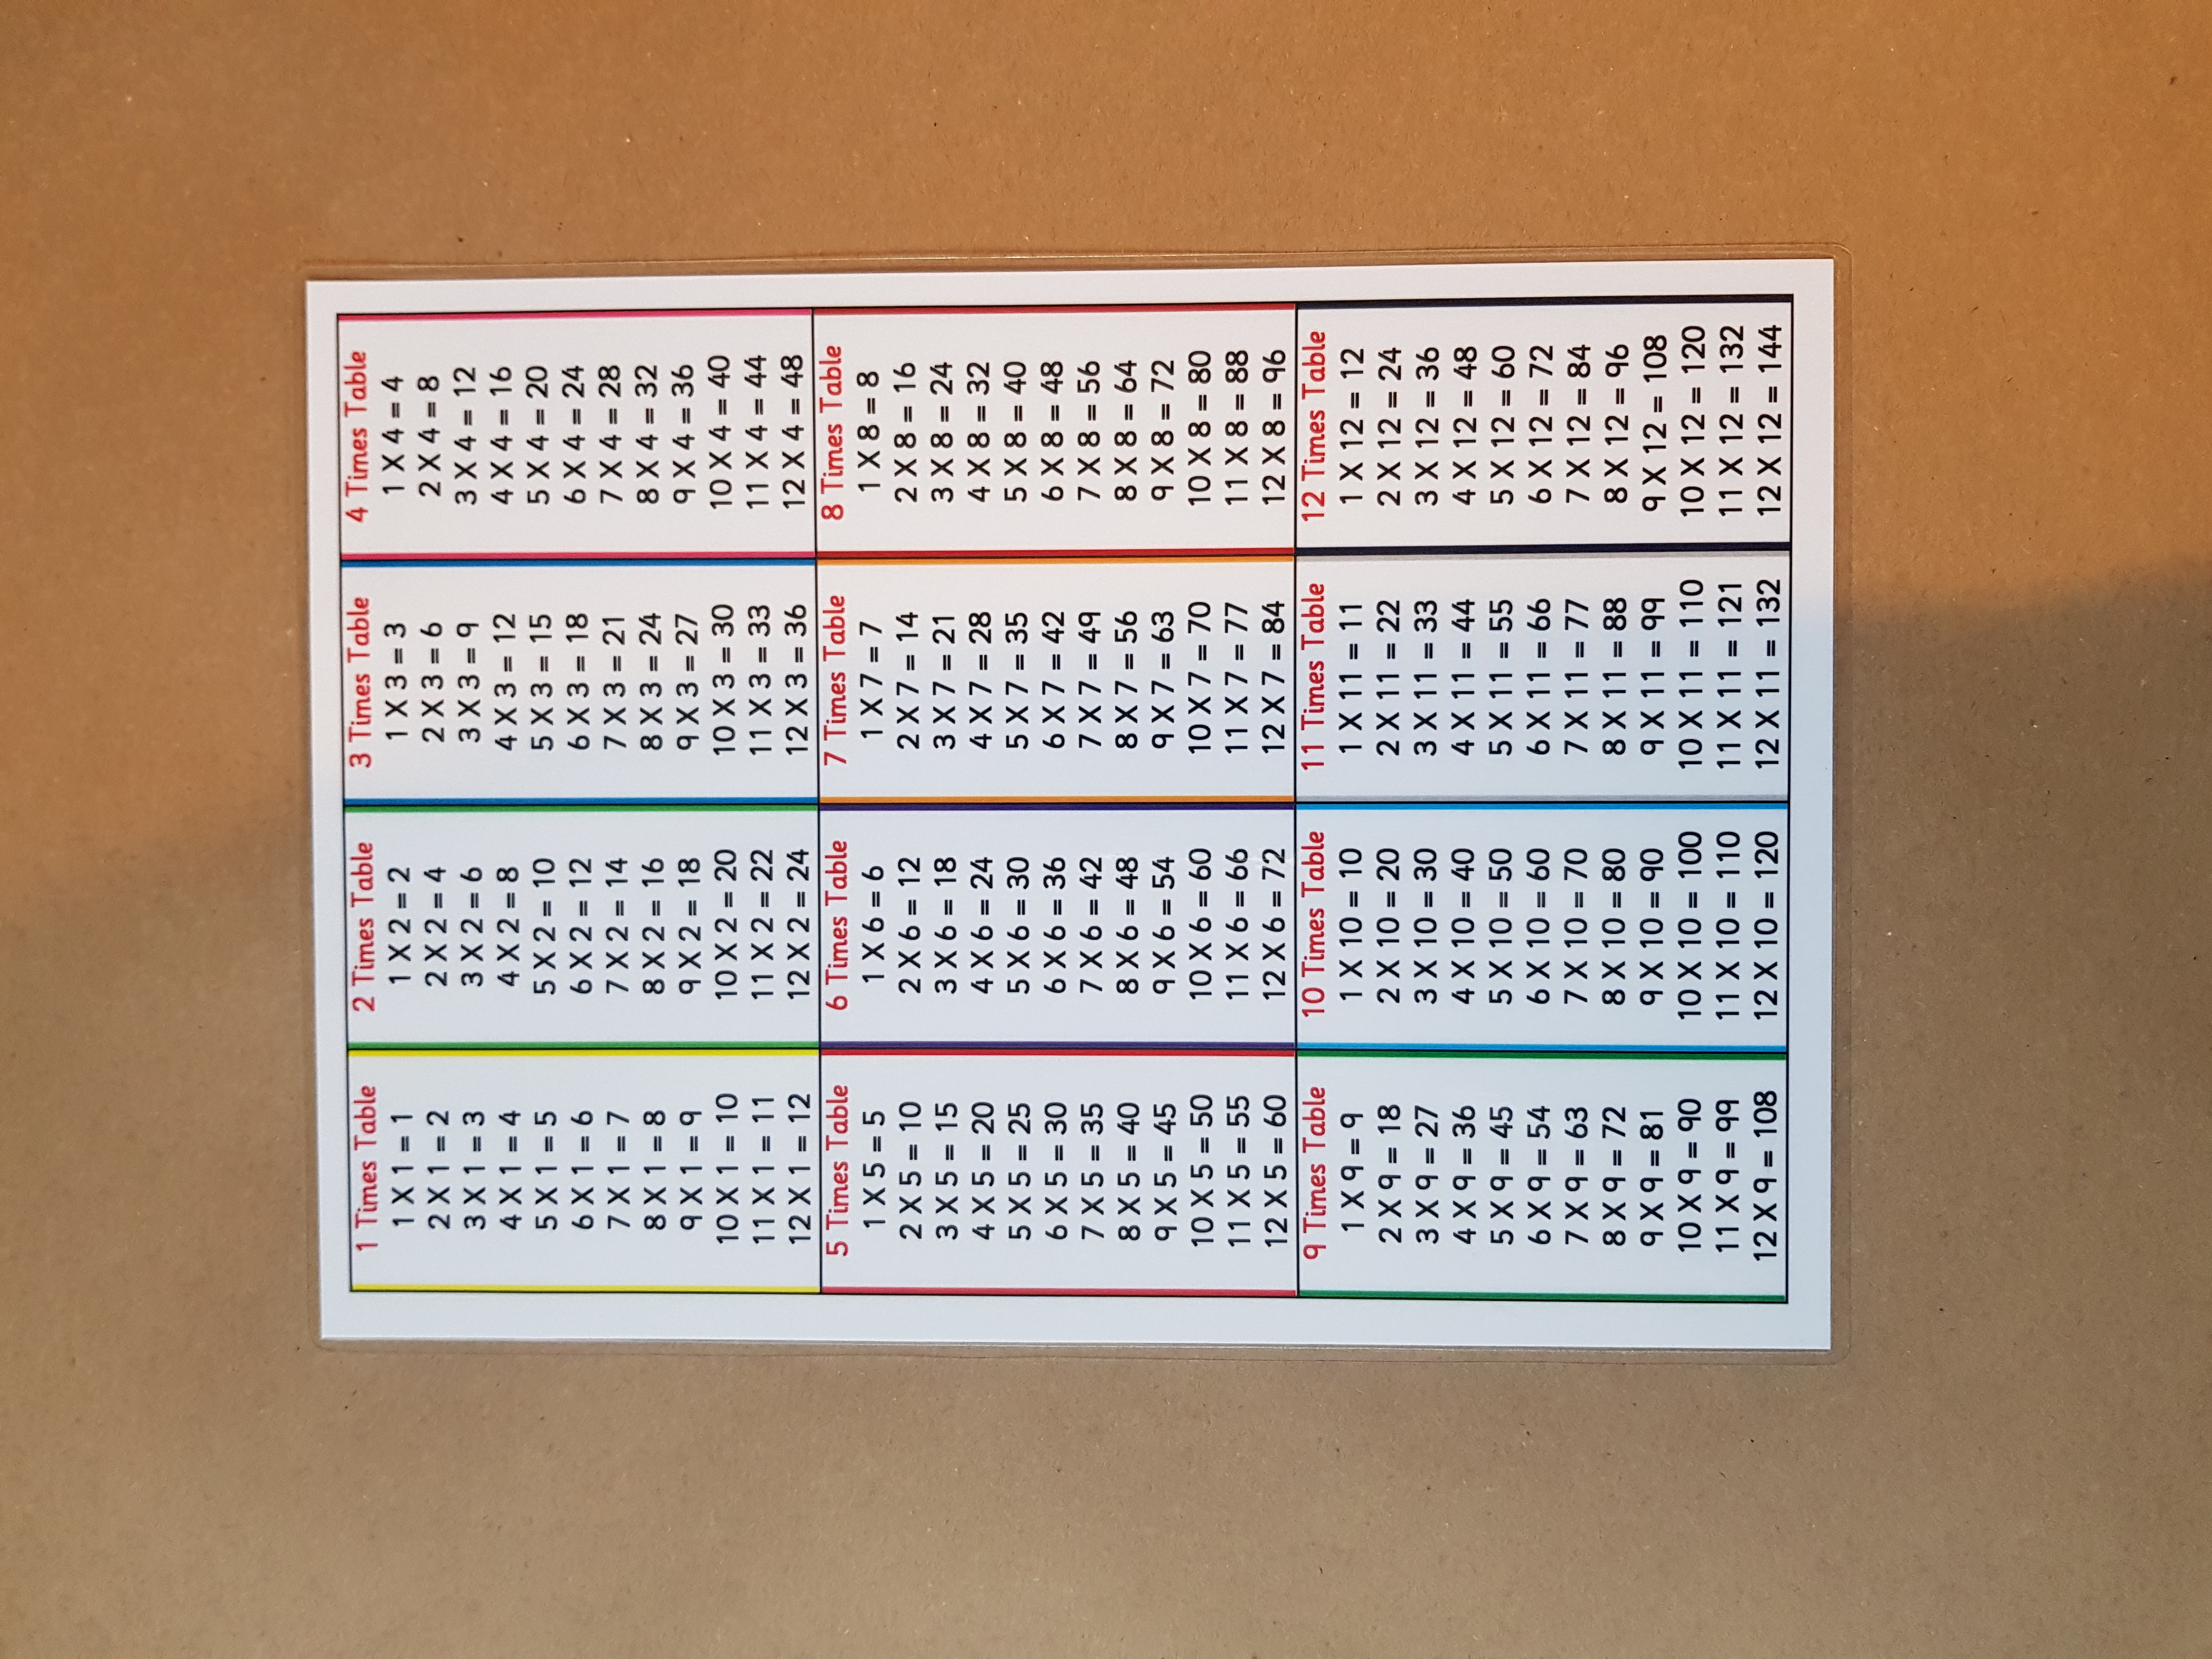 1 Times Table
1 X 1 = 1
2 X 1 = 2
3 X 1 = 3
4 X 1 = 4
5 X 1 = 5
6 X 1 = 6
7 X 1 = 7
8 X 1 = 8
9 X 1 = 9
10 X 1 = 10
11 X 1 = 11
12 X 1 = 12
2 Times Table
1 X 2 = 2
2 X 2 = 4
3 X 2 = 6
4 X 2 = 8
5 X 2 = 10
6 X 2 = 12
7 X 2 = 14
8 X 2 = 16
9 X 2 = 18
10 X 2 = 20
11 X 2 = 22
12 X 2 = 24
3 Times Table
1 X 3 = 3
2 X 3 = 6
3 X 3 = 9
4 X 3 = 12
5 X 3 = 15
6 X 3 = 18
7 X 3 = 21
8 X 3 = 24
9 X 3 = 27
10 X 3 = 30
11 X 3 = 33
12 X 3 = 36
4 Times Table
1 X 4 = 4
2 X 4 = 8
3 X 4 = 12
4 X 4 = 16
5 X 4 = 20
6 X 4 = 24
7 X 4 = 28
8 X 4 = 32
9 X 4 = 36
10 X 4 = 40
11 X 4 = 44
12 X 4 = 48
5 Times Table
1 X 5 = 5
2 X 5 = 10
3 X 5 = 15
4 X 5 = 20
5 X 5 = 25
6 X 5 = 30
7 X 5 = 35
8 X 5 = 40
9 X 5 = 45
10 X 5 = 50
11 X 5 = 55
12 X 5 = 60
6 Times Table
1 X 6 = 6
2 X 6 = 12
3 X 6 = 18
4 X 6 = 24
5 X 6 = 30
6 X 6 = 36
7 X 6 = 42
8 X 6 = 48
9 X 6 = 54
10 X 6 = 60
11 X 6 = 66
12 X 6 = 72
7 Times Table
1 X 7 = 7
2 X 7 = 14
3 X 7 = 21
4 X 7 = 28
5 X 7 = 35
6 X 7 = 42
7 X 7 = 49
8 X 7 = 56
9 X 7 = 63
10 X 7 = 70
11 X 7 = 77
12 X 7 = 84
8 Times Table
1 X 8 = 8
2 X 8 = 16
3 X 8 = 24
4 X 8 = 32
5 X 8 = 40
6 X 8 = 48
7 X 8 = 56
8 X 8 = 64
9 X 8 = 72
10 X 8 = 80
11 X 8 = 88
12 X 8 = 96
9 Times Table
1 X 9 = 9
2 X 9 = 18
3 X 9 = 27
4 X 9 = 36
5 X 9 = 45
6 X 9 = 54
7 X 9 = 63
8 X 9 = 72
9 X 9 = 81
10 X 9 = 90
11 X 9 = 99
12 X 9 = 108
10 Times Table
1 X 10 = 10
2 X 10 = 20
3 X 10 = 30
4 X 10 = 40
5 X 10 = 50
6 X 10 = 60
7 X 10 = 70
8 X 10 = 80
9 X 10 = 90
10 X 10 = 100
11 X 10 = 110
12 X 10 = 120
11 Times Table
1 X 11 = 11
2 X 11 = 22
3 X 11 = 33
4 X 11 = 44
5 X 11 = 55
6 X 11 = 66
7 X 11 = 77
8 X 11 = 88
9 X 11 = 99
10 X 11 = 110
11 X 11 = 121
12 X 11 = 132
12 Times Table
1 X 12 = 12
2 X 12 = 24
3 X 12 = 36
4 X 12 = 48
5 X 12 = 60
6 X 12 = 72
7 X 12 = 84
8 X 12 = 96
9 X 12 = 108
10 X 12 = 120
11 X 12 = 132
12 X 12 = 144